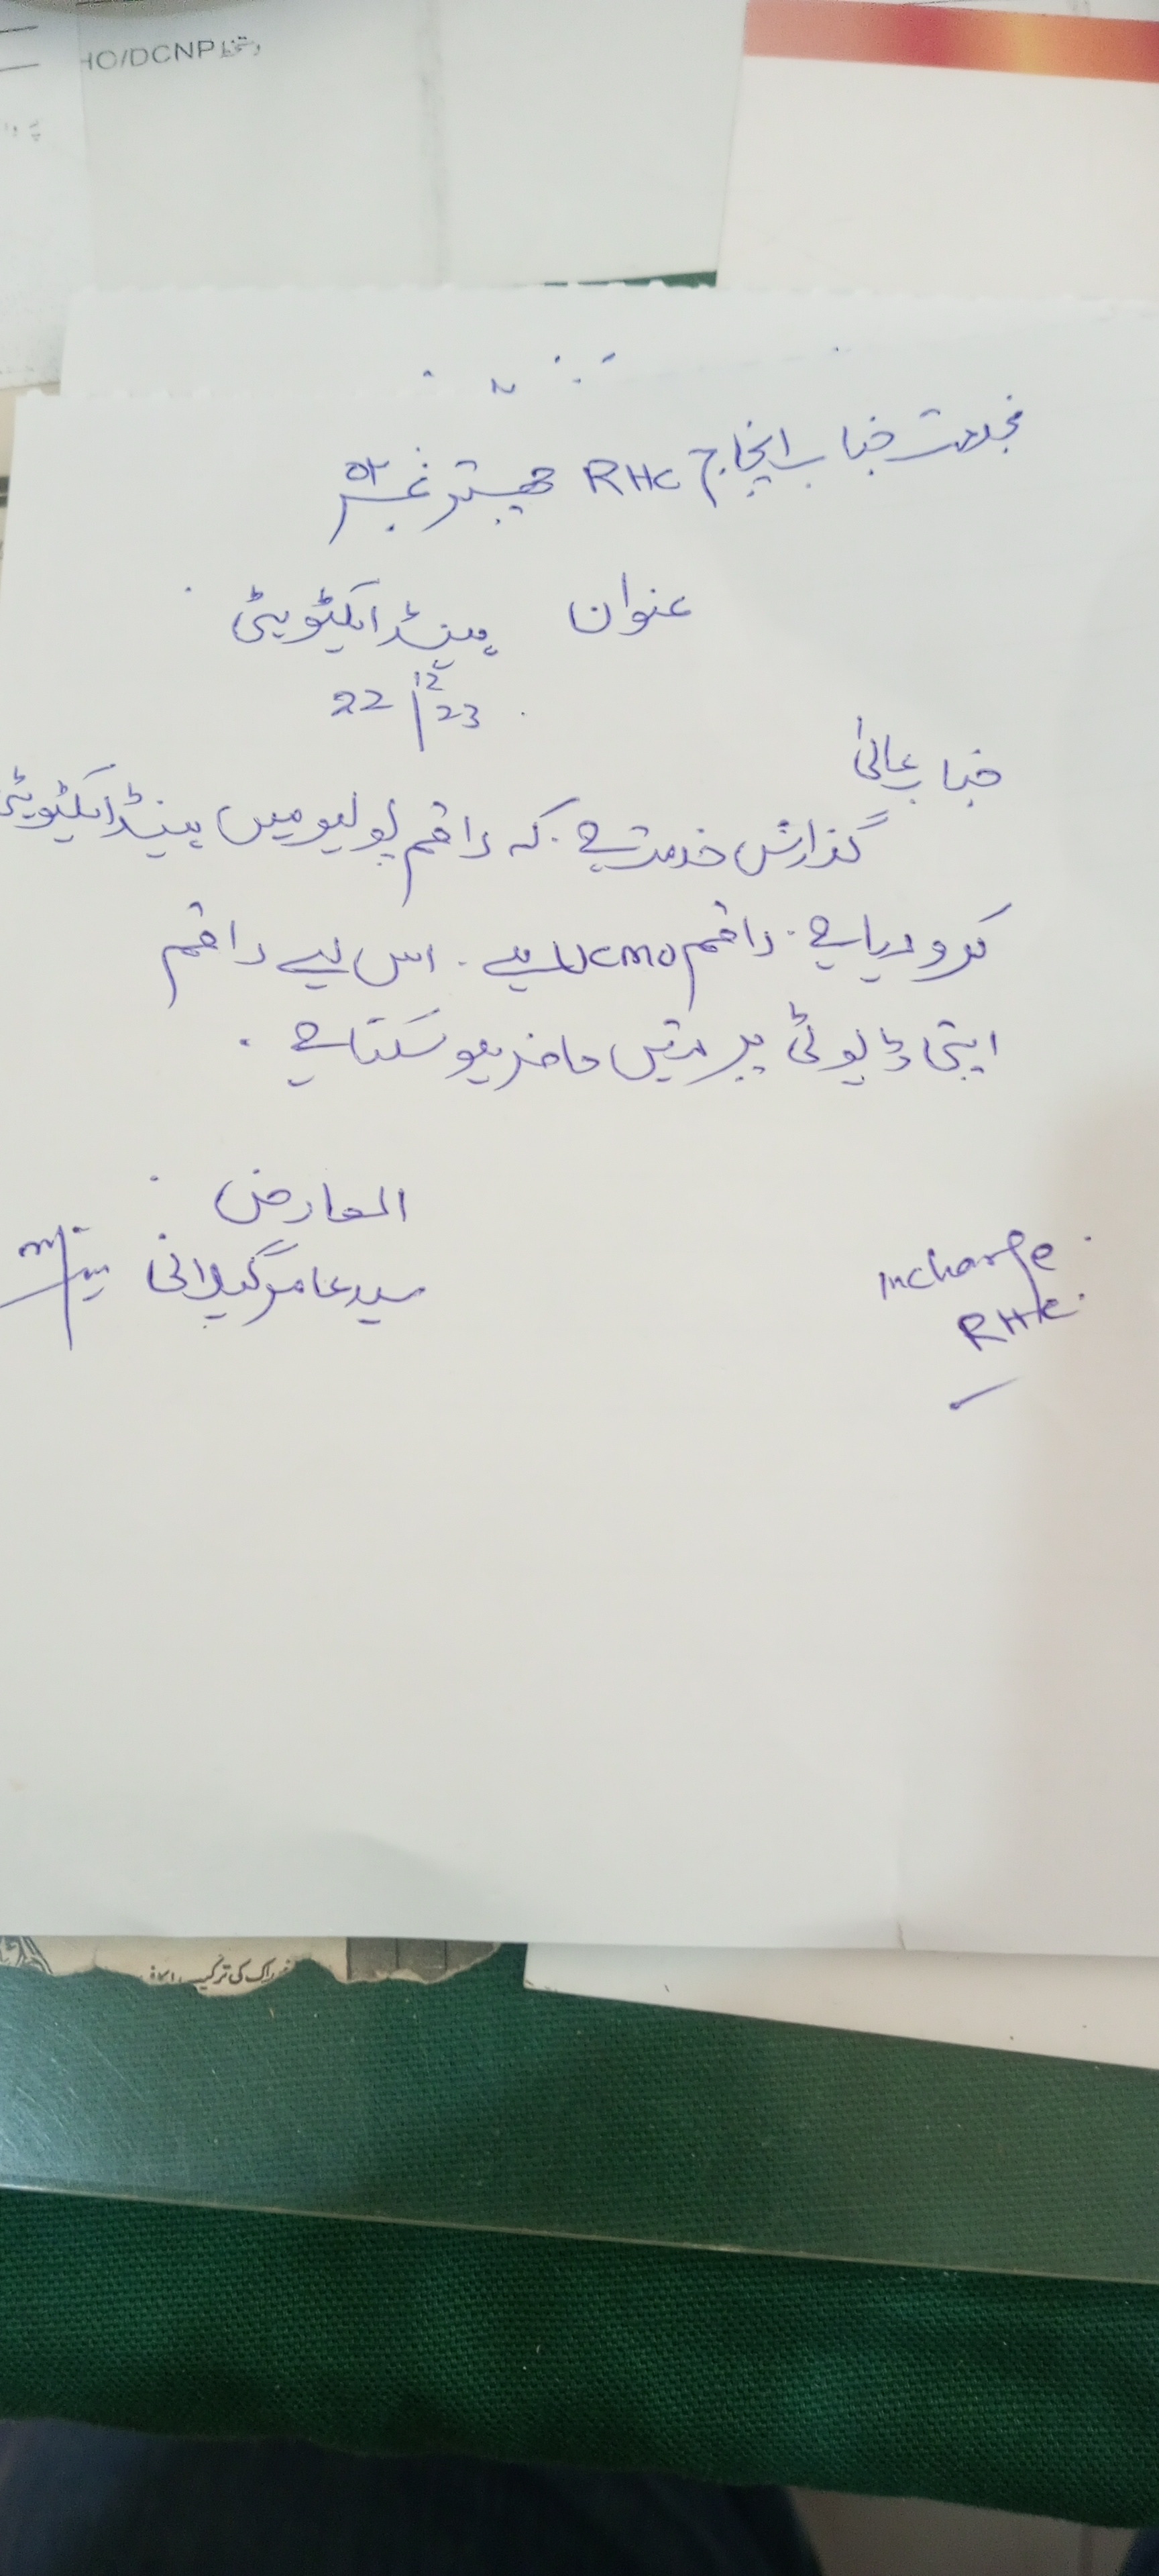 HO/DCNP دستخط
بخدمت جناب انچارج RHC چھتر نمبر ۲
عنوان ہینڈ ایکٹویٹی
22/12/23
جناب عالیٰ
گذارش خدمت ہے۔ کہ راقم پولیو میں ہینڈ ایکٹیویٹی
کرو دیا ہے۔ راقم UCMO ہے۔ اس لیے راقم
اپنی ڈیوٹی پر نہیں حاضر ہو سکتا ہے۔
العارض
سید عامر گیلانی
Incharge
RHC
خوراک کی ترکیب